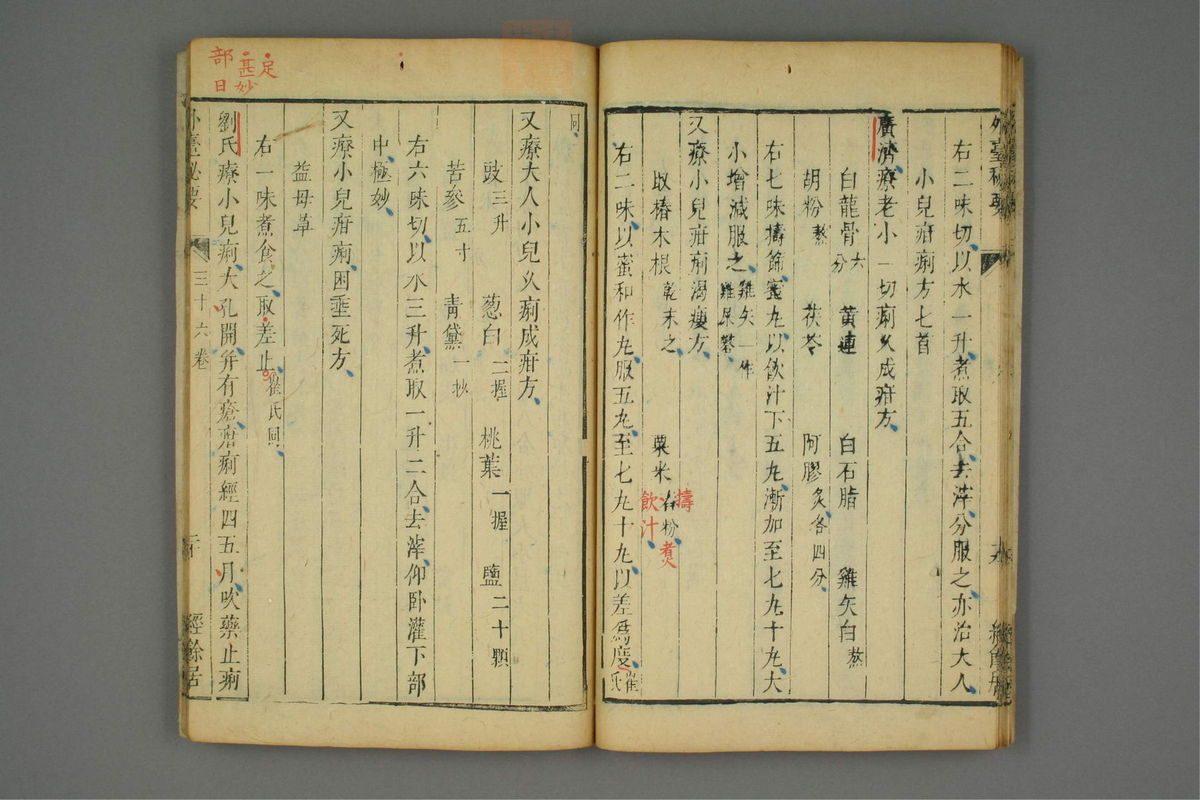 外臺秘要
右二味切以水一升煮取五合去滓分服之亦治大人
小兒疳痢方七首
廣濟療老小一切痢久成疳方
白龍骨六分 黃連 白石脂 雞矢白熬
胡粉熬 茯苓 阿膠炙各四分
右七味擣篩蜜丸以飲汁下五丸漸加至七丸十丸大
小增減服之雞矢一作雞屎礬
又療小兒疳痢渴瘦方
取椿木根乾末之 粟米作粉煮
擣
飲汁
右二味以蜜和作丸服五丸至七丸十丸以差爲度崔氏
同
又療大人小兒久痢成疳方
豉三升 葱白一握 桃葉一握 鹽二十顆
苦參五寸 青黛一抄
右六味切以水三升煮取一升二合去滓仰卧灌下部
中極妙
又療小兒疳痢困垂死方
益母草
右一味煮食之取差止崔氏同
足
甚妙
部日
劉氏療小兒痢大孔開并有瘡䘌痢經四五月吹藥止痢
外臺秘要 三十六卷 二十 經餘居